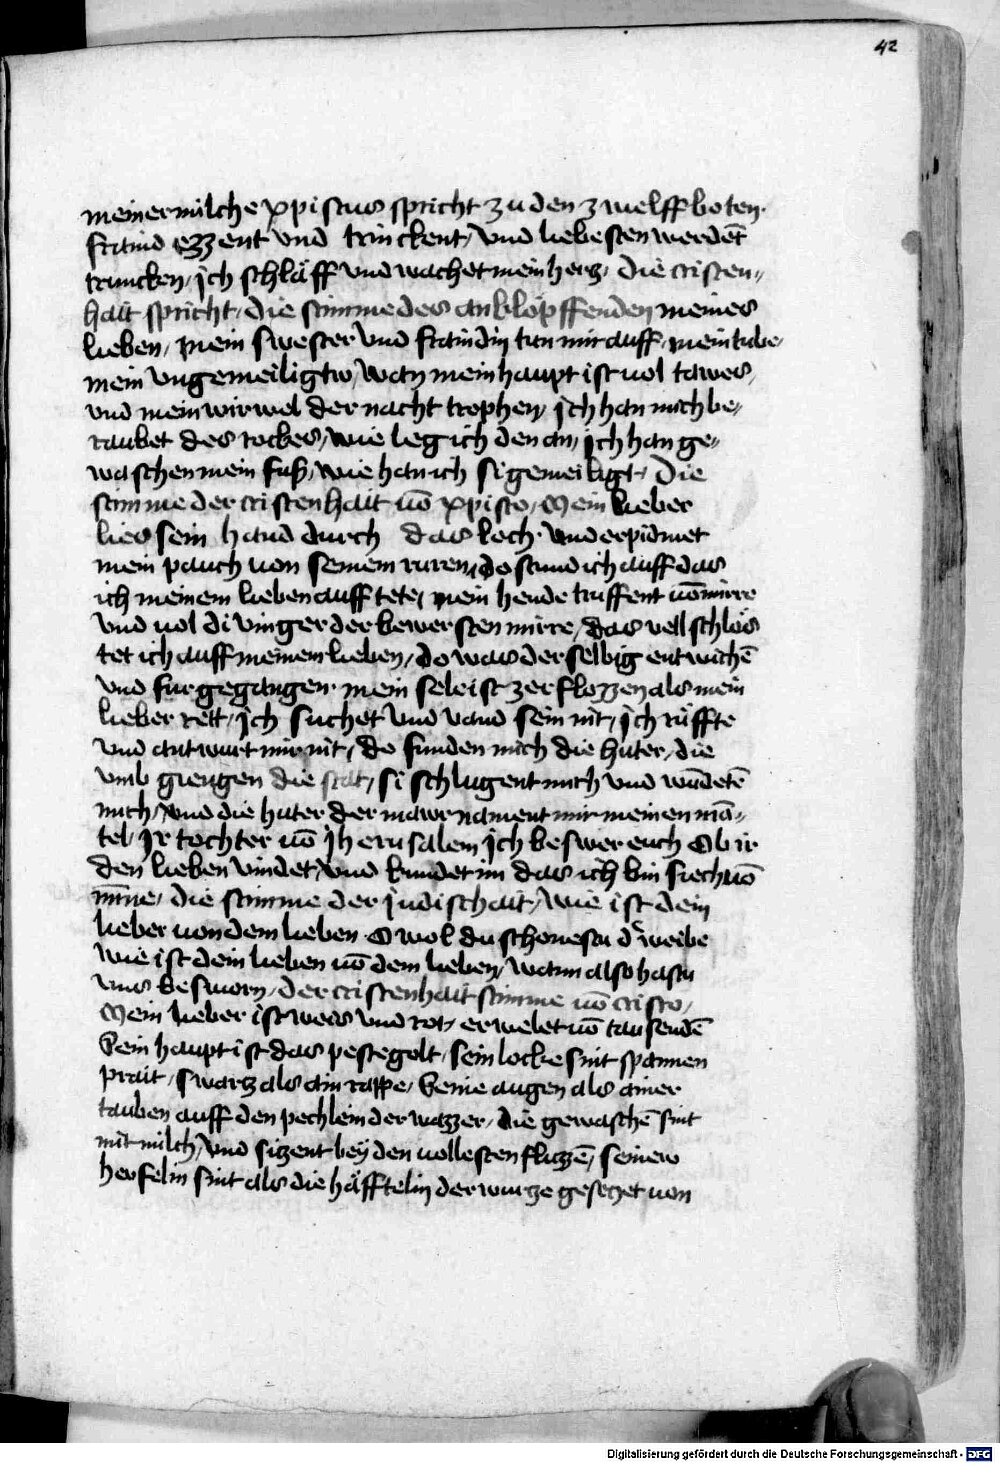 42
meiner milch xpistus spricht zu den zwelffboten.
fraind ezzent vnd trinckent, vnd liebesten werdēt
truncken, jch schläff vnd wachet mein herz, die cristen„
hait spricht, die stimme des anklöpffenden meines
lieben, mein swester vnd fraindin tun mir auff, mein tube,
mein vngemeiligtw, wan mein haupt ist uol tawes,
vnd mein wirwel der nacht trophen, jch han mich be„
raubet des rockes, wie leg ich den an, jch han ge„
waschen mein fuß, wie han ich si gemeiligt, Die
stimme der cristenhait uō xpisto, Mein lieber
lies sein hand durch das loch. vnd erpidmet
mein pauch uon seinem ruren, do stund ich auff das
ich meinem lieben auff tete, mein hende truffent uō mirre
vnd uol di vinger der bewersten mirre, das vell schlös
tet ich auff meinem lieben, do was der selbig entwichē
vnd fur gegangen. mein sele ist zerflozzen als mein
lieber rett, jch suchet vnd vand sein nit, jch rüffte
vnd antwurt mir nit, do funden mich die huter, die
vmb giengen die stat, si schlugent mich vnd wūdetē
mich, vnd die huter der mawr nament mir meinen mā„
tel, jr tochter uō jherusalem jch beswer euch Ob ir
den lieben vindet, vnd kundet im das ich bin siech uō
mīne, die stimme der judischait, wie ist dein
lieber uon dem lieben. O wol du schonestu d' weibe
wie ist dein lieben uō dem lieben, wann also hastu
vns besworn, der cristenhait stimme uō cristo,
Mein lieber ist weis vnd rot, erwelet uō tausendē
Sein haupt ist das peste golt, sein locke sint spannen
prait, swarz als ain rappe, Seine augen als ainer
tauben auff den pechlein der wazzer, die gewaschē sint
mit milch, vnd sizent bey den uollesten fluzzē, seinew
heufelin sint als die häfftelin der wurze gesetzet uon
Digitalisierung gefördert durch die Deutsche Forschungsgemeinschaft - DFG